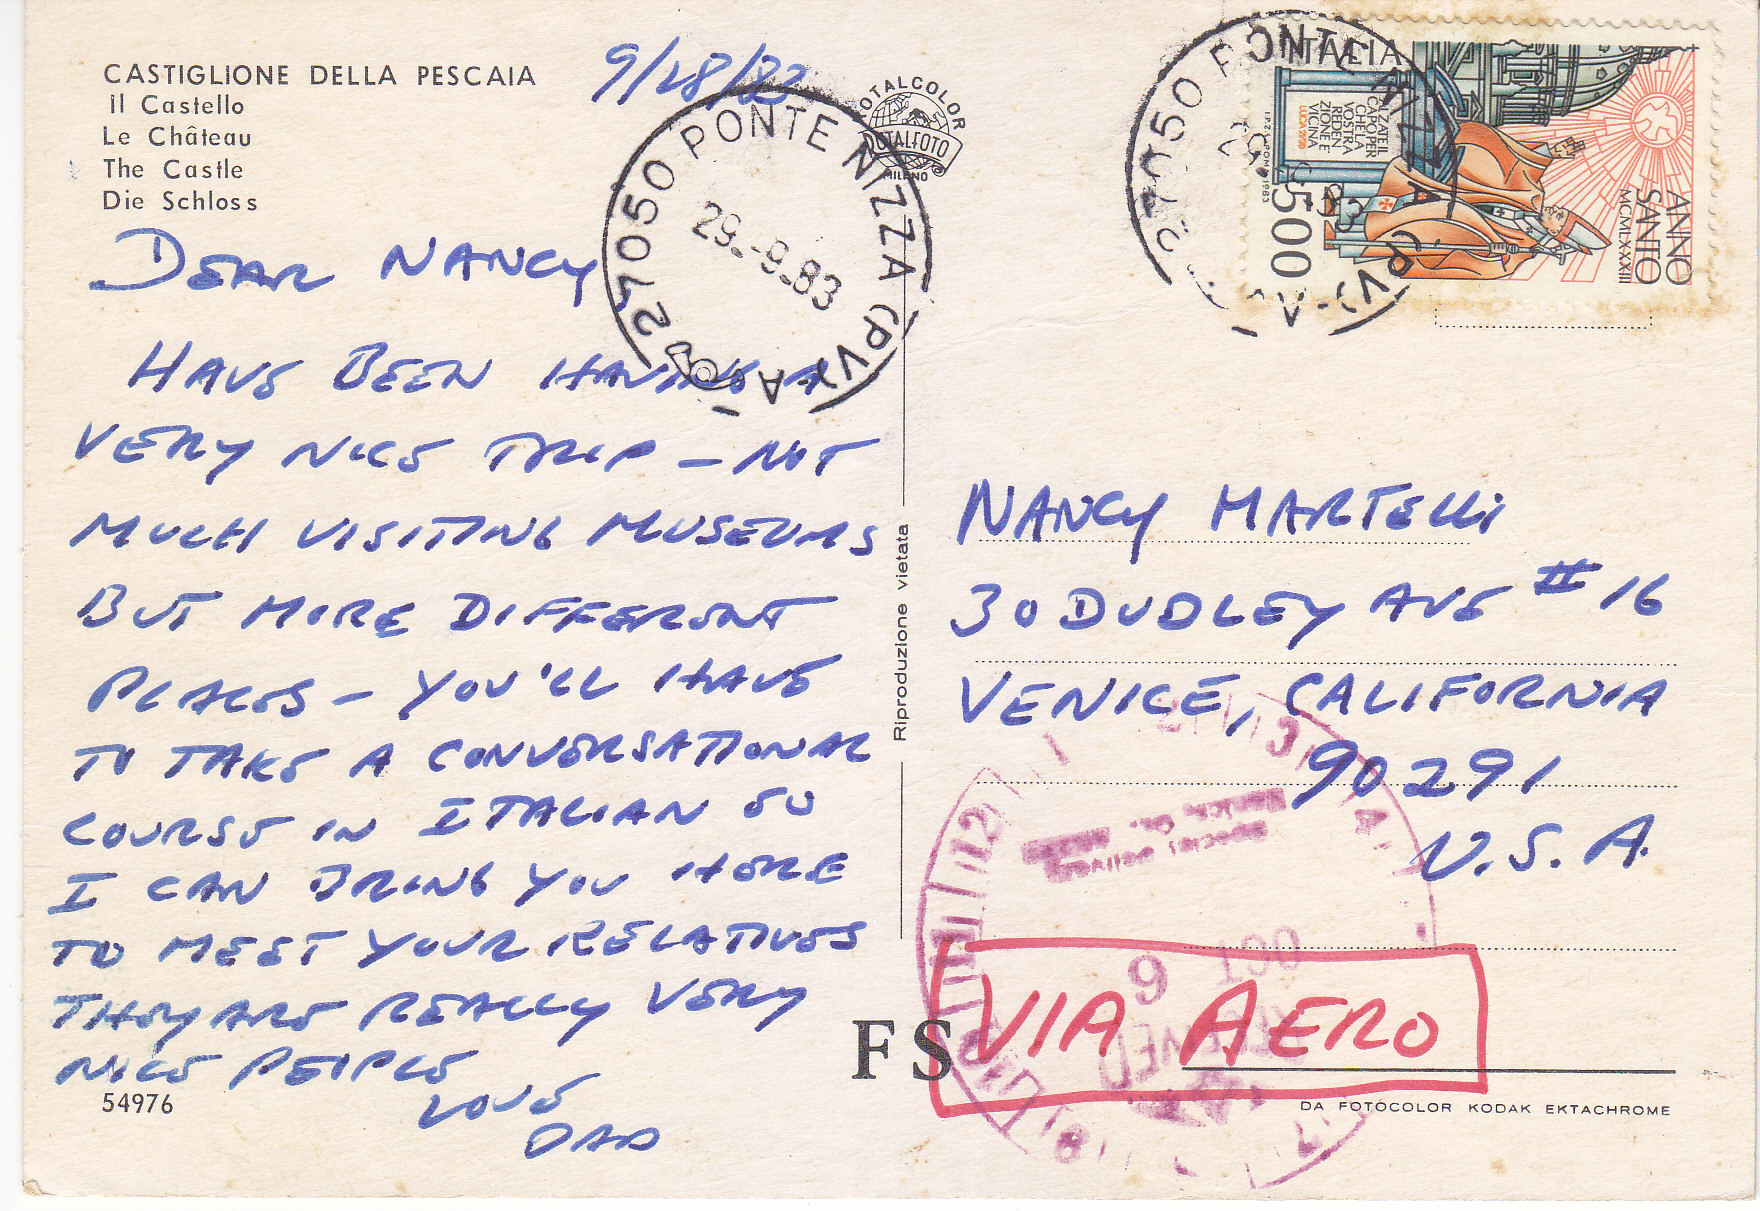 CASTIGLIONE DELLA PESCAIA
Il Castello
Le Château
The Castle
Die Schloss
9/28/83
TOTALCOLOR
TOTALFOTO
MILANO
27050 PONTE NIZZA (PV) A
29.-9.83
27050 PONTE NIZZA (PV) A
ITALIA
ALZATE IL
CAPO PERCHE LA
VOSTRA
REDENZIONE E
VICINA
LUCA 21/28
500
ANNO
SANTO
MCMLXXXIII
DEAR NANCY
HAVE BEEN HAVING A
VERY NICE TRIP – NOT
MUCH VISITING MUSEUMS
BUT MORE DIFFERENT
PLACES – YOU'LL HAVE
TO TAKE A CONVERSATIONAL
COURSE IN ITALIAN SO
I CAN BRING YOU HERE
TO MEET YOUR RELATIVES
THEY ARE REALLY VERY
NICE PEOPLE
LOVE
DAD
54976
Riproduzione vietata
NANCY MARTELLI
30 DUDLEY AVE # 16
VENICE, CALIFORNIA
90291
U.S.A.
Special Delivery
Venice, Ca.
OCT 9
RECEIVED
FS
VIA AERO
DA FOTOCOLOR KODAK EKTACHROME